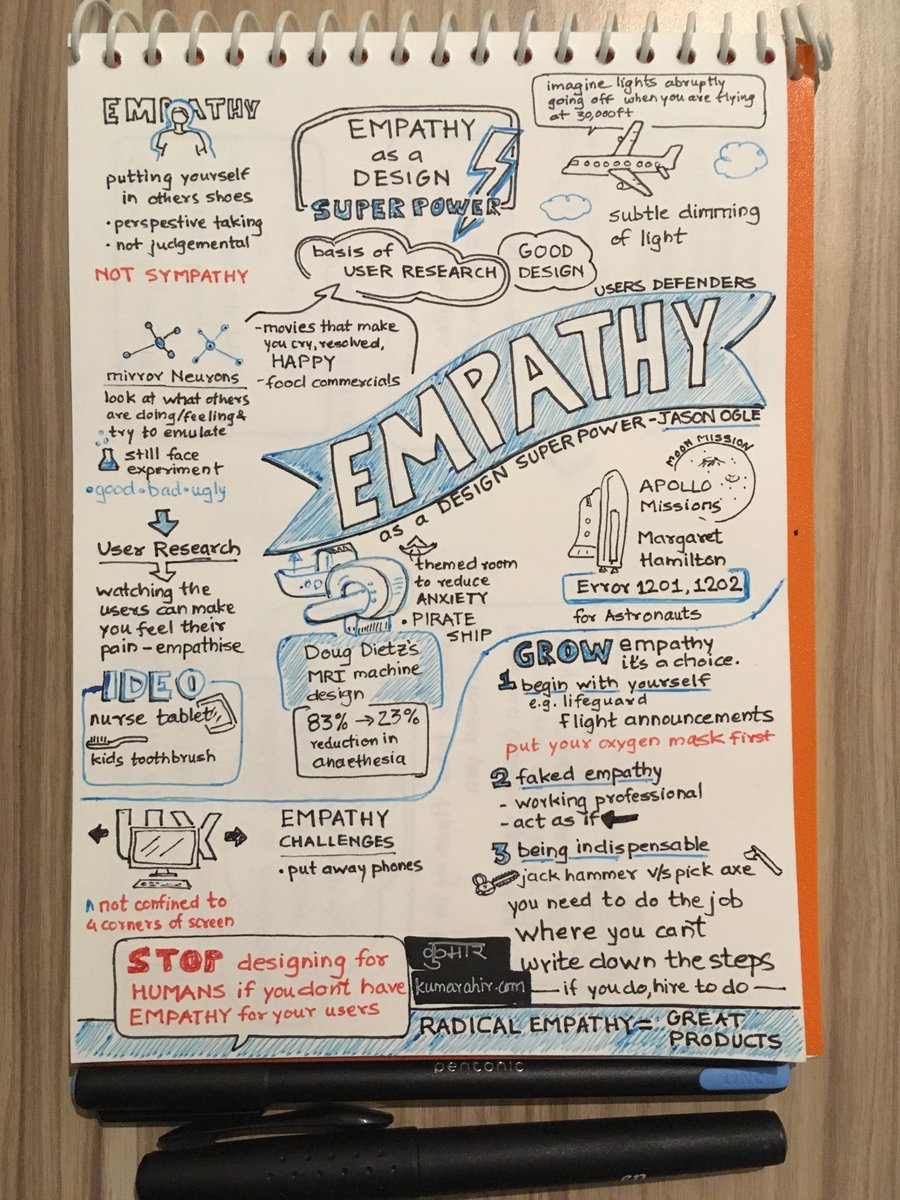 EMPATHY
putting yourself
in others shoes
• perspestive taking
• not judgemental
NOT SYMPATHY
EMPATHY
as a
DESIGN
SUPERPOWER
imagine lights abruptly
going off when you are flying
at 30,000ft
subtle dimming
of light
basis of
USER RESEARCH
GOOD
DESIGN
-movies that make
you cry, resolved,
HAPPY
-food commercials
USERS DEFENDERS
EMPATHY
as a DESIGN SUPERPOWER-JASON OGLE
mirror Neurons
look at what others
are doing/feeling &
try to emulate
still face
experiment
•good•bad•ugly
User Research
watching the
users can make
you feel their
pain - empathise
IDEO
nurse tablet
kids toothbrush
themed room
to reduce
ANXIETY
• PIRATE
SHIP
Doug Dietz's
MRI machine
design
83% → 23%
reduction in
anaethesia
MOON MISSION
APOLLO
Missions
Margaret
Hamilton
Error 1201, 1202
for Astronauts
GROW empathy
it's a choice.
1 begin with yourself
e.g. lifeguard
flight announcements
put your oxygen mask first
2 faked empathy
- working professional
- act as if
3 being indispensable
jack hammer v/s pick axe
you need to do the job
where you can't
write down the steps
— if you do, hire to do —
UX
not confined to
4 corners of screen
EMPATHY
CHALLENGES
• put away phones
STOP designing for
HUMANS if you don't have
EMPATHY for your users
कुमार
kumarahir.com
RADICAL EMPATHY = GREAT
PRODUCTS
pentonic
LINC